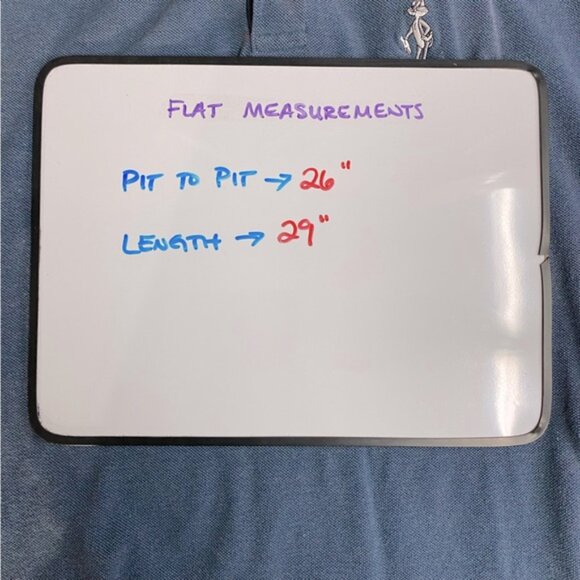 FLAT MEASUREMENTS
PIT TO PIT → 26"
LENGTH → 29"